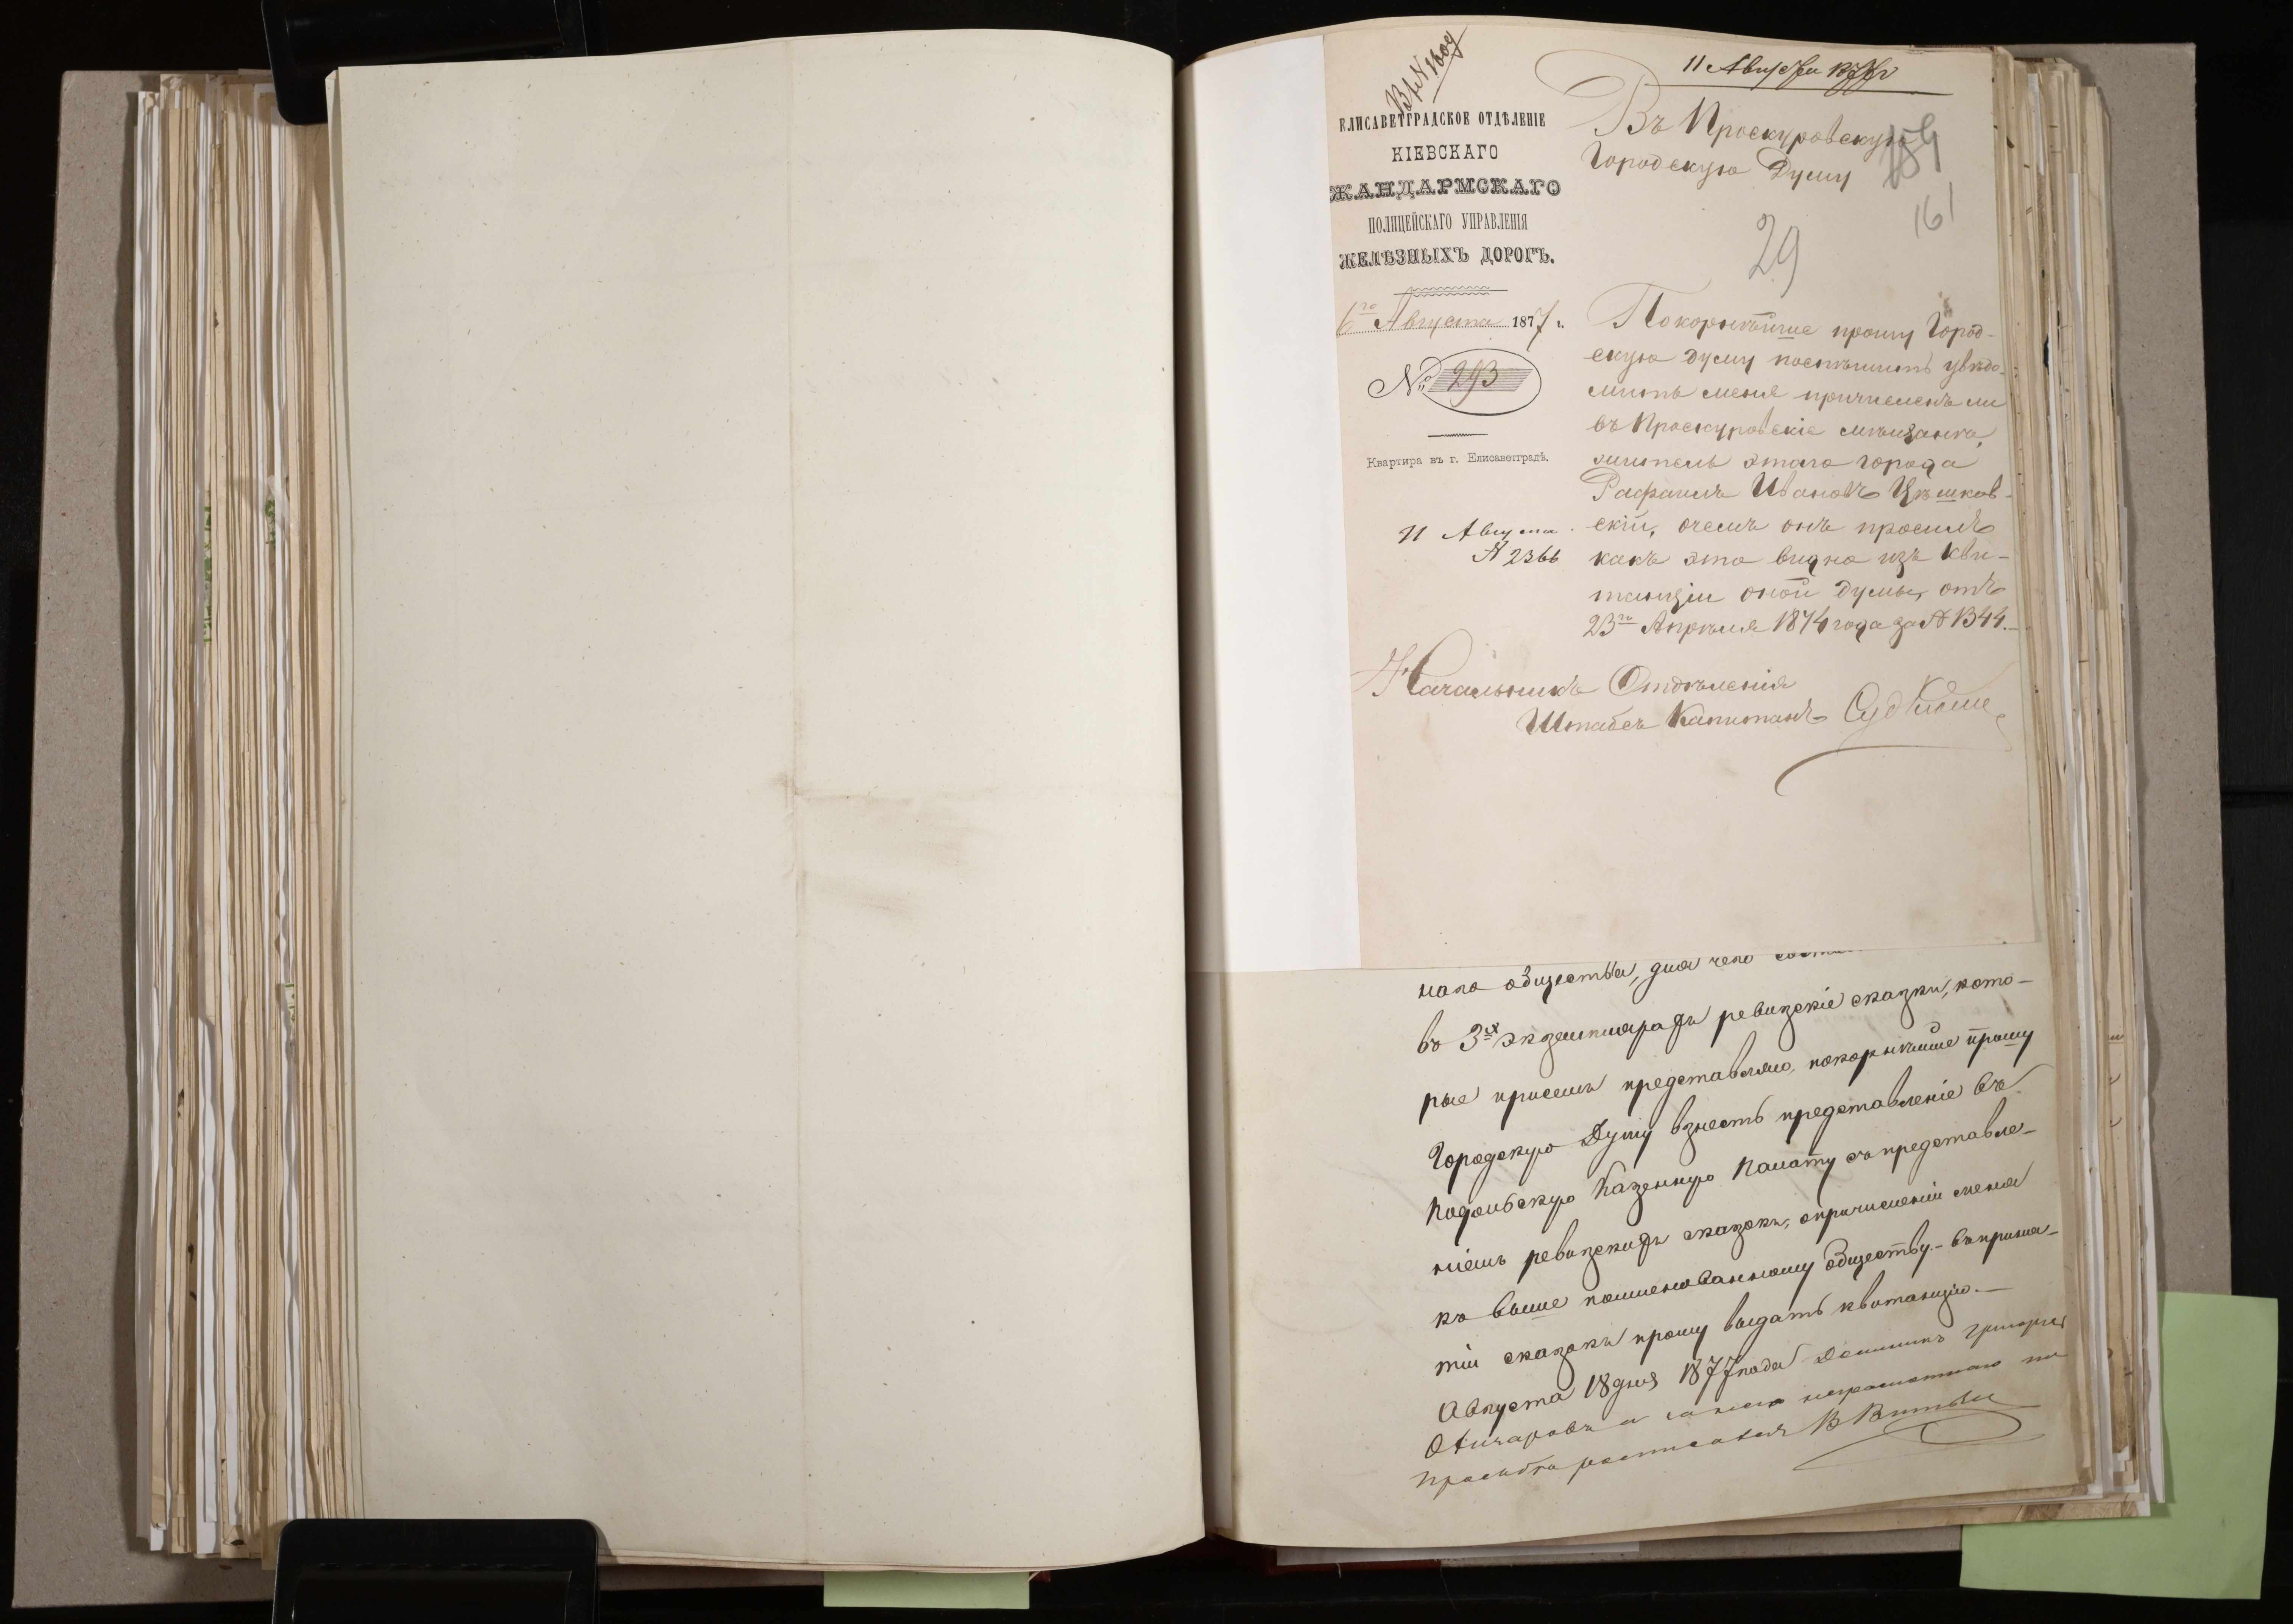 Вх № 1609
11 Августа 1877 г
159
161
29
ЕЛИСАВЕТГРАДСКОЕ ОТДѢЛЕНІЕ
КІЕВСКАГО
ЖАНДАРМСКАГО
ПОЛИЦЕЙСКАГО УПРАВЛЕНІЯ
ЖЕЛѢЗНЫХЪ ДОРОГЪ.
6го Августа 1877 г.
№ 293
Квартира въ г. Елисаветградѣ.
11 Августа
№ 2366
Въ Проскуровскую
Городскую Думу
Покорнѣйше прошу Город-
скую Думу поспѣшить увѣдо-
мить меня причисленъ ли
въ Проскуровскіе мѣщане,
житель этого города
Рафаилъ Ивановъ Цѣшков-
скій, очемъ онъ просилъ
какъ это видно изъ Кви-
танціи оной Думы, отъ
23го Апрѣля 1874 года за № 1344.
Начальникъ Отдѣленія
Штабсъ Капитанъ Судѣ
наго общества, для чего
въ 3х экземплярахъ ревизскіе сказки, кото-
рые присемъ представляю, покорнѣйше прошу
Городскую Думу взнесть представленіе въ
Подольскую Казенную Палату съ представле-
ніемъ ревизскихъ сказокъ, опричисленіи меня
къ выше поименованному обществу. - Въ приня-
тіи сказокъ прошу выдать квитанцію. -
Августа 18 дня 1877 года Доминикъ Григорьев
а занего неграмотнаго по
просьбѣ росписался В